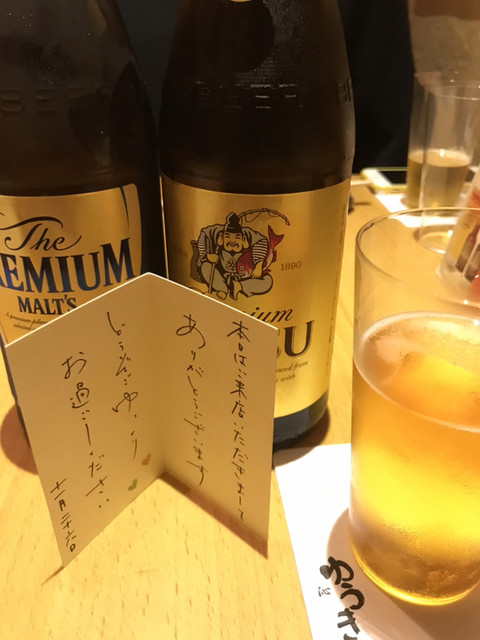 The
PREMIUM
MALT'S
BEER
1890
本日はご来店いただきまして
ありがとうございます
どうぞごゆっくり
お過ごしください
十一月二十六日
ゆうき